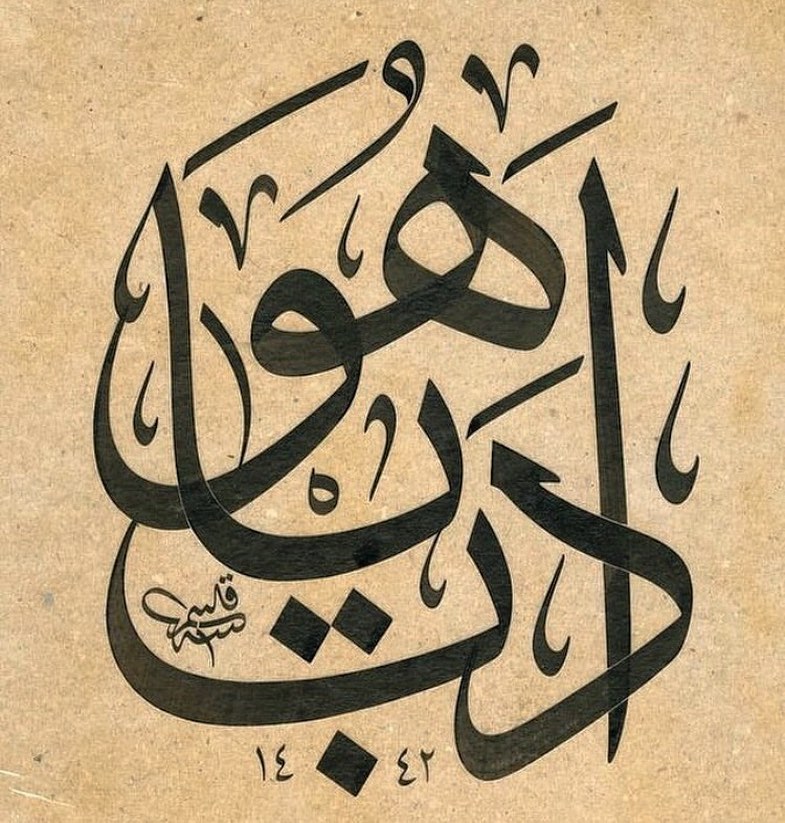 ادب
يا
هو
قاسم
١٤٤٢